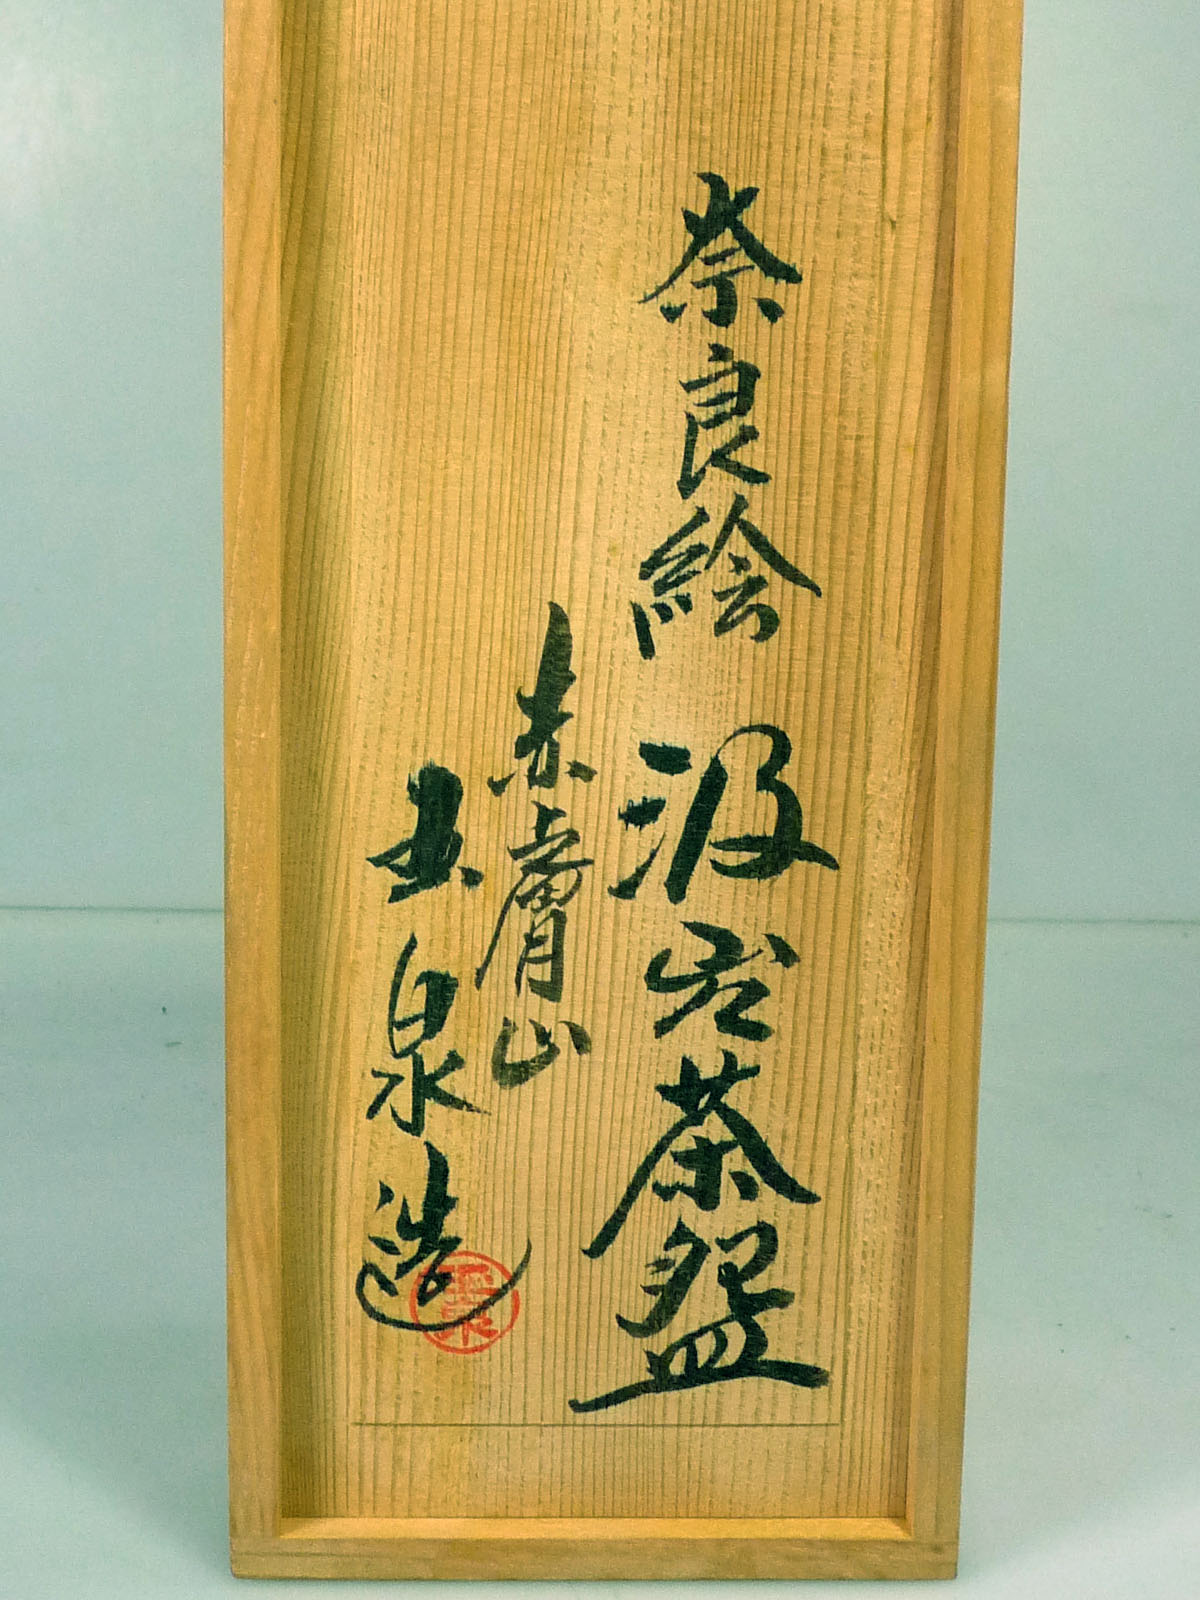 奈良絵 汲出茶盌
赤膚山
玉泉造
玉泉